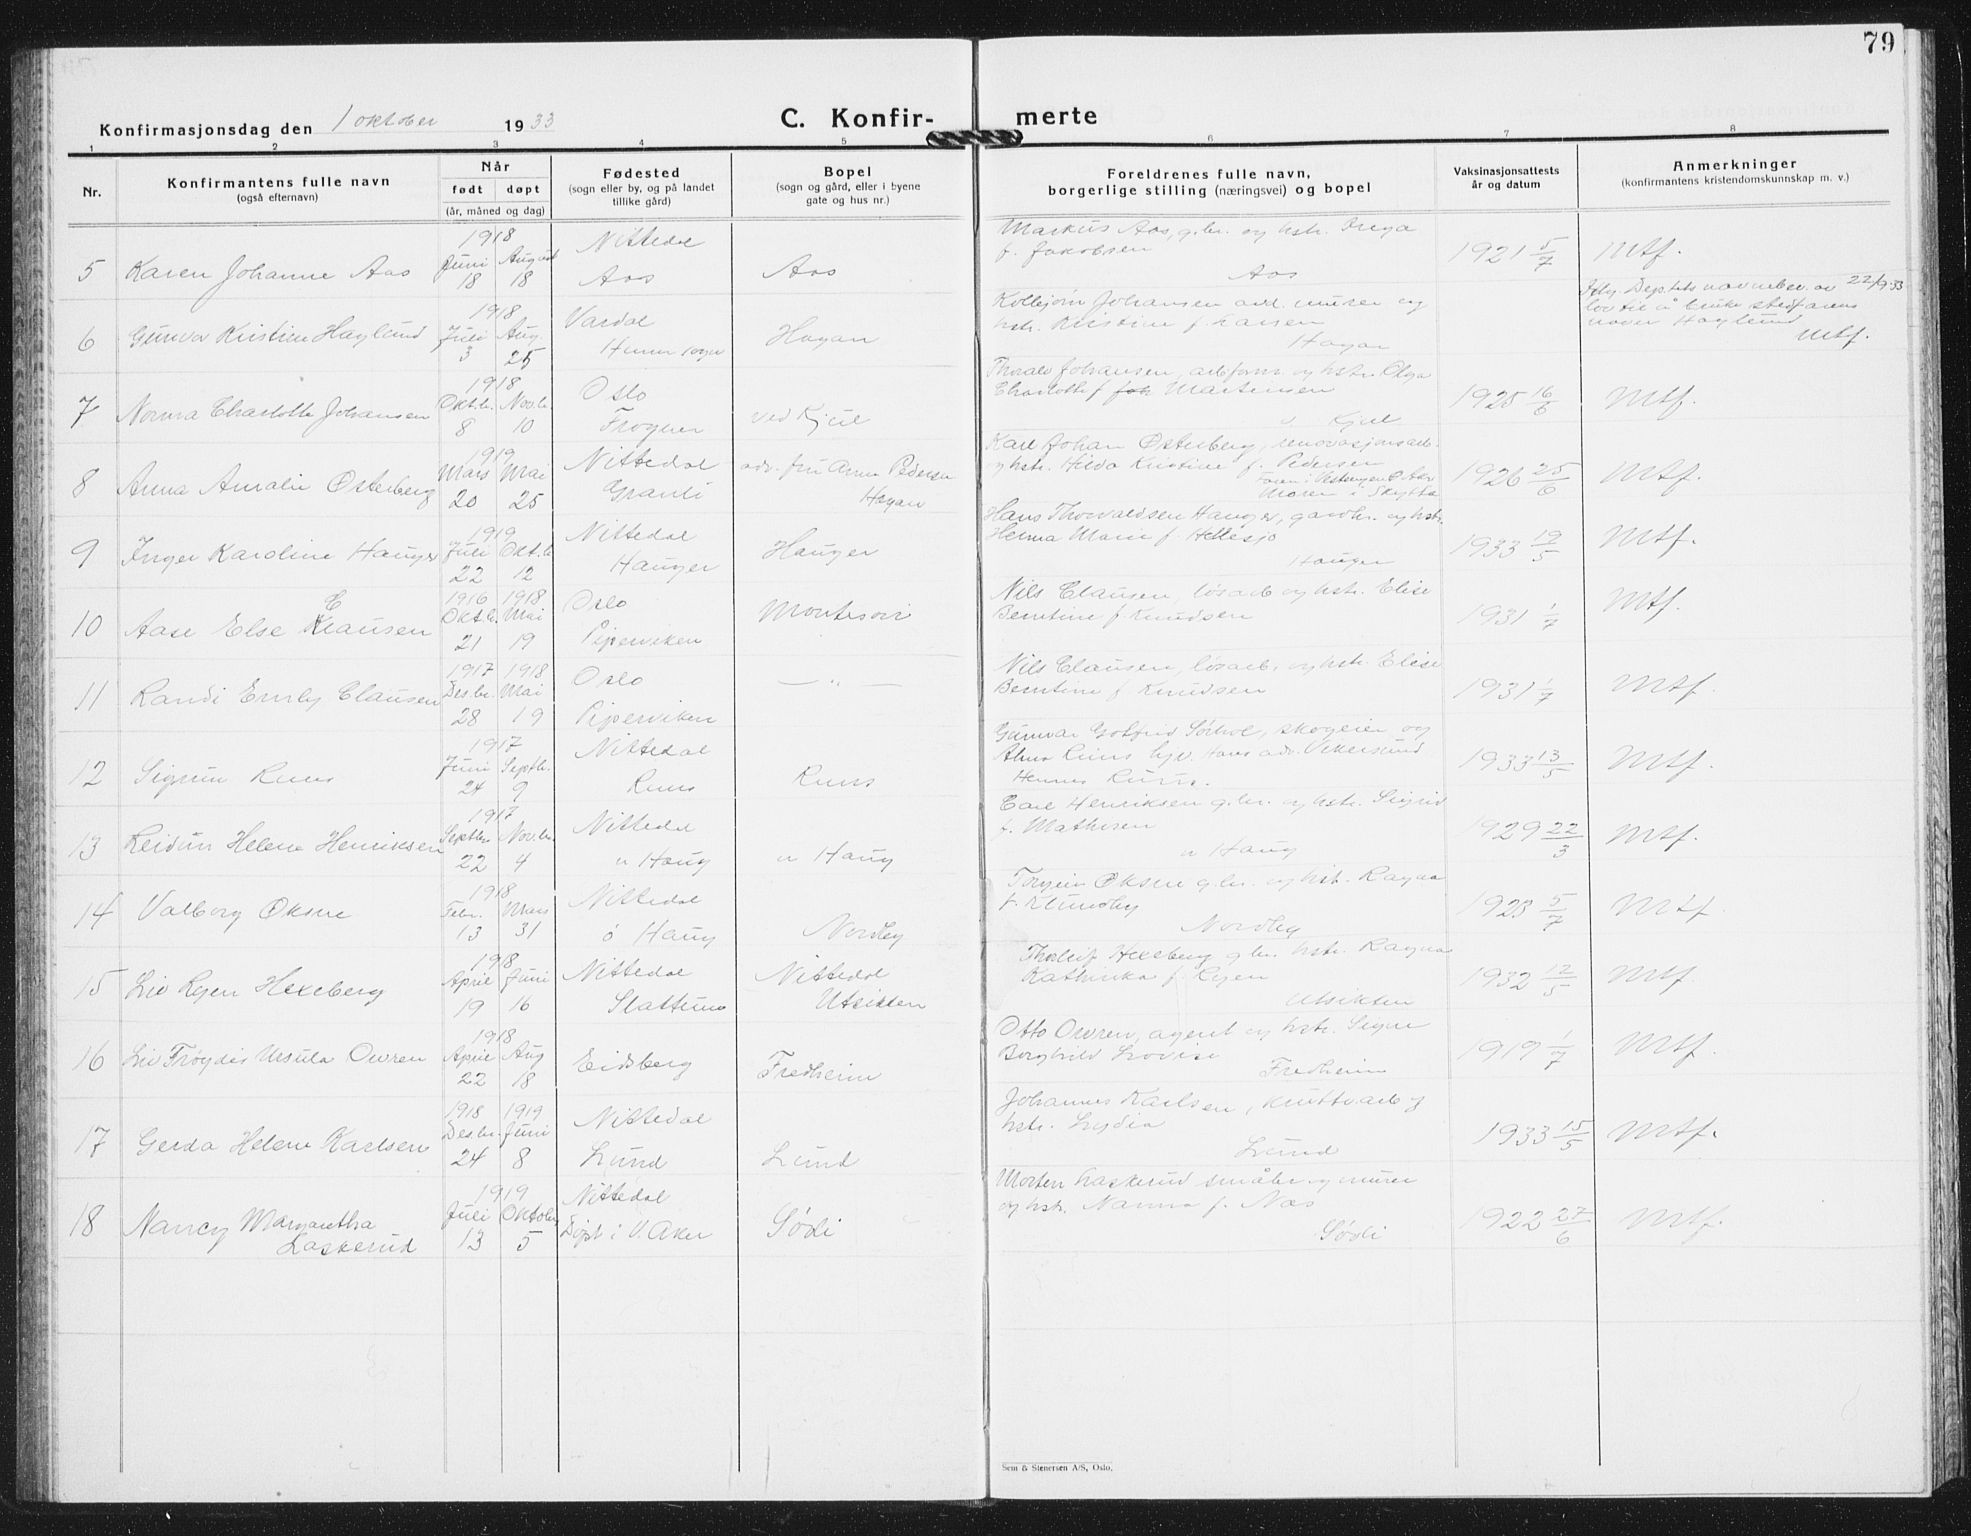 79
Konfirmasjonsdag den 1 oktober 1933 C. Konfir- merte
1 2 3 4 5 6 7 8
Nr.
Konfirmantens fulle navn
(også efternavn)
Når
født døpt
(år, måned og dag)
Fødested
(sogn eller by, og på landet
tillike gård)
Bopel
(sogn og gård, eller i byene
gate og hus nr.)
Foreldrenes fulle navn,
borgerlige stilling (næringsvei) og bopel
Vaksinasjonsattests
år og datum
Anmerkninger
(konfirmantens kristendomskunnskap m. v.)
5 Karen Johanne Aas
1918
Juni August
18 18
Nittedal
Aas
Aas
Markus Aas, g.br. og hstr.
f. Jakobsen
Aas
1921 5/7
Mtf.
6 Gunvor Kristine Haglund
1918
Juli Aug.
3 25
Vardal
Hunn sogn
Hagan
Kolbjørn Johansen murer og
hstr. Kristine f. Larsen
Hagan
22/9 33
lov til å bruke stedfarens
navn Haglund
Mtf.
7 Norma Charlotte Johansen
1918
Oktbr. Novbr.
8 10
Oslo
Frogner
ved Kjul
Thoralf Johansen, og hstr. Olga
Charlotte f. Martinsen
v. Kjul
1925 16/6
Mtf.
8 Anna Amalie Østerberg
1919
Mars Mai
20 25
Nittedal
Granli
adr. fru Anna Pedersen
Hagan
Karl Johan Østerberg, renovasjonsarb.
og hstr. Hilda Kristine f. Pedersen
Moren i Skytta
1926 25/6
Mtf.
9 Inger Karoline Hauger
1919
Juli Okt.b.
22 12
Nittedal
Hauger
Hauger
Hans Thorvaldsen Hauger, gårdbr. og hstr.
Herma Marie f. Hellesjø
Hauger
1933 19/5
Mtf.
10 Aase Else Clausen
1916 1918
Oktb. Mai
21 19
Oslo
Piperviken
Montesori
Nils Clausen, løsarb og hstr. Elise
Berntine f. Knudsen
1931 1/7
Mtf.
11 Randi Emly Clausen
1917 1918
Desbr. Mai
28 19
Oslo
Piperviken
— „ —
Nils Clausen, løsarb. og hstr. Elise
Berntine f. Knudsen
1931 1/7
Mtf.
12 Sigrun Ruus
1917
Juni Septb.
24 9
Nittedal
Ruus
Ruus
Gunvar Gotfrid Sørhol, skogeier og
Alma Ruus hjv. Hans adr. Vikersund
Hennes Ruus.
1933 13/5
Mtf.
13 Reidun Helene Henriksen
1917
Septbr. Nov.br.
22 4
Nittedal
n Haug
n Haug
Carl Henriksen g.br. og hstr. Sigrid
f. Mathisen
n Haug
1929 22/3
Mtf.
14 Valborg Øksne
1918
Febr. Mars
13 31
Nittedal
ø Haug
Nordby
Torgein Øksne g.br. og hstr. Ragna
f. Klundby
Nordby
1923 5/7
Mtf.
15 Liv Ryen Hexeberg
1918
April Juni
19 16
Nittedal
Slattum
Nittedal
Utsikten
Thorleif Hexeberg g.br. hstr. Ragna
Kathinka f. Ryen
Utsikten
1932 12/5
Mtf.
16 Liv Frøydis Ursula Owren
1918
April Aug
22 18
Eidsberg
Fredheim
Otto Owren, agent og hstr. Signe
Borghild Lovise
Fredheim
1919 1/7
Mtf.
17 Gerda Helene Karlsen
1918 1919
Desbr. Juni
24 8
Nittedal
Lund
Lund
Johannes Karlsen, kruttarb og
hstr. Lydia
Lund
1933 15/5
Mtf.
18 Nancy Margaretha
Laskerud
1919
Juli Oktober
13 5
Nittedal
Døpt i V. Aker
Sødli
Morten Laskerud småbr og murer
og hstr. Nanna f. Næs
Sødli
1922 27/6
Mtf.
Sem & Stenersen A/S, Oslo.